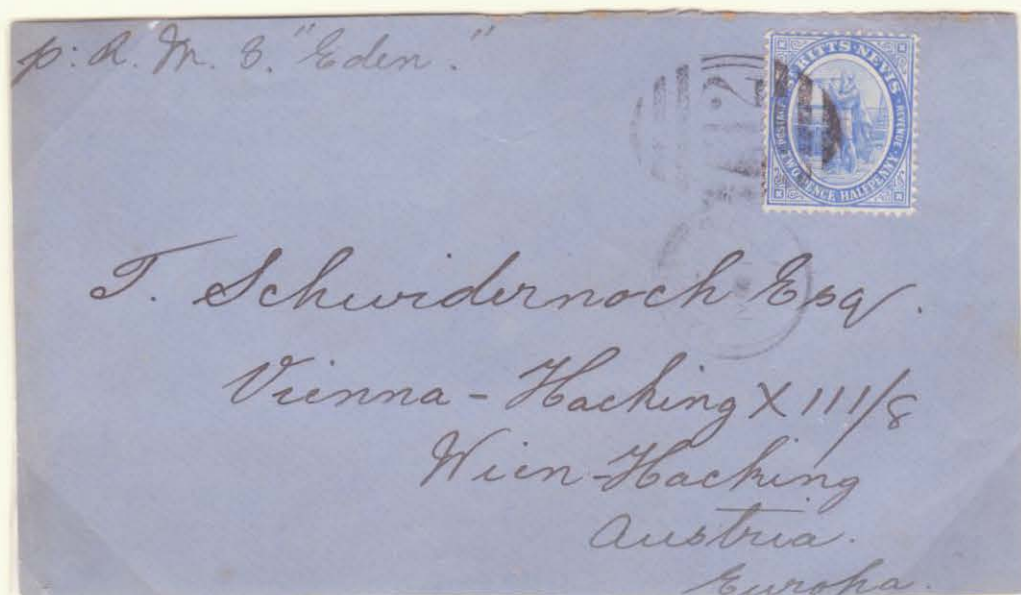 p: R. M. S. "Eden."
ST KITTS·NEVIS
POSTAGE REVENUE
TWO PENCE HALFPENNY
A12
T. Schwidernoch Esq.
Vienna - Hacking X111/8
Wien-Hacking
Austria.
Europa.